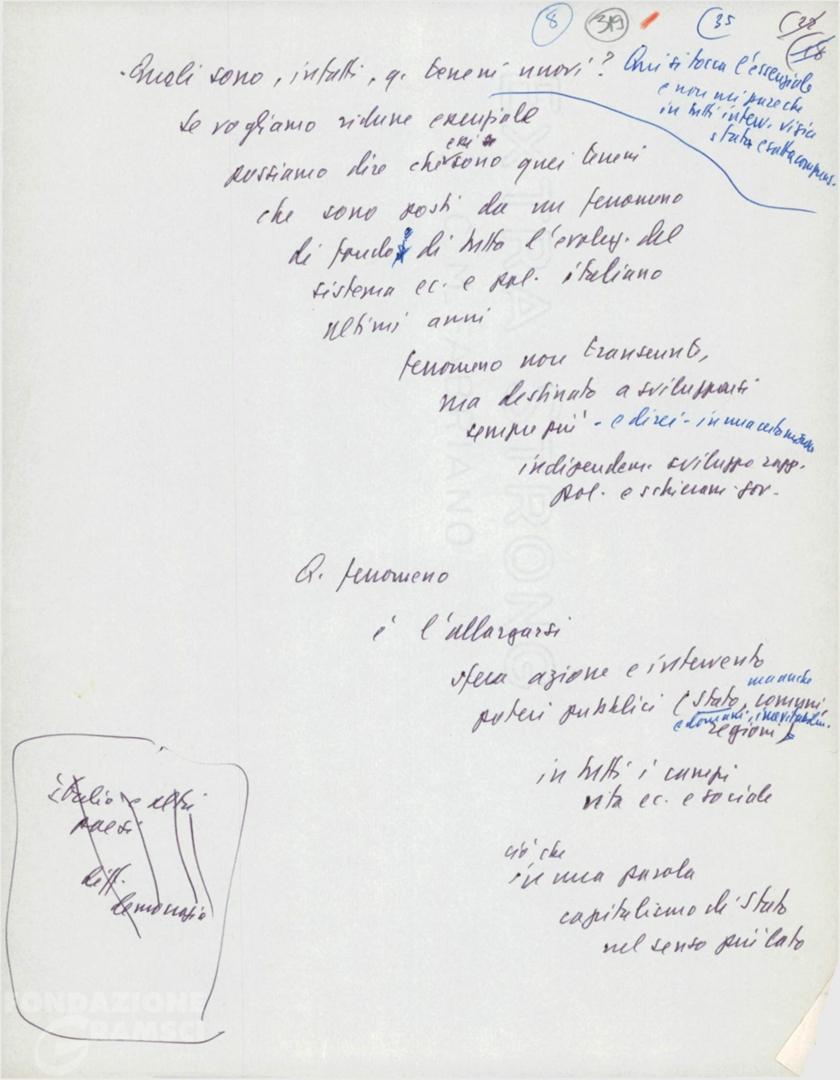 8 39 35
- Quali sono, infatti, q. terreni nuovi? Qui si tocca l'essenziale
e non mi pare che
in tutti interv. vi sia
stata esatta compens.
se vogliamo ridurre essenziale
possiamo dire che essi sono quei terreni
che sono posti da un fenomeno
di fondo di tutta l'evoluz. del
sistema ec. e pol. italiano
ultimi anni
fenomeno non transeunte,
ma destinato a svilupparsi
sempre più - e direi - in una certa misura
indipendem. sviluppo rapp.
pol. e schieram. gov.
Q. fenomeno
è l'allargarsi
sfera azione e intervento
ma anche
poteri pubblici (Stato, comuni,
e domani, inevitabilm.
regioni)
in tutti i campi
vita ec. e sociale
ciò che
in una parola
capitalismo di Stato
nel senso più lato
Italia e altri
paesi
diff.
democrazia
FONDAZIONE
GRAMSCI
EXTRA STRONG